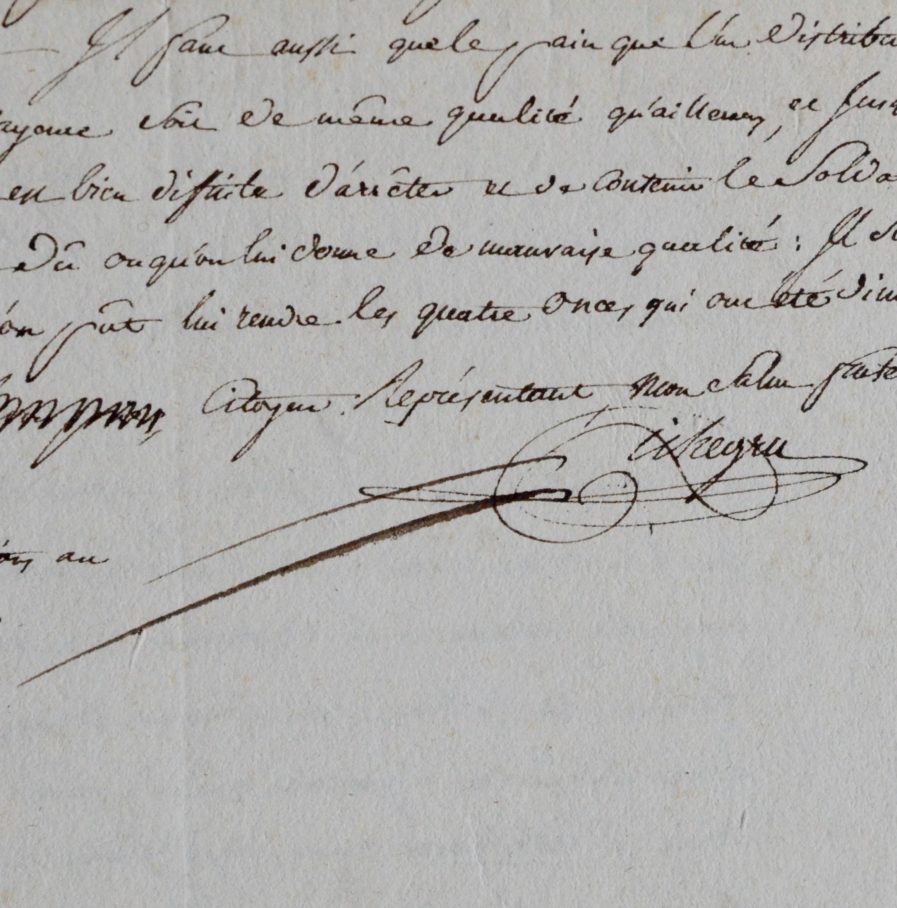 Il faut aussi que le pain que l'on distribu
ayonne soit de même qualité qu'ailleurs, et jusq
est bien difficile d'arrêter et de contenir le Solda
dû ou qu'on lui donne de mauvaise qualité : Il s
on put lui rendre les quatre onces qui ont été dim
Citoyen Représentant, mon salut frate
au